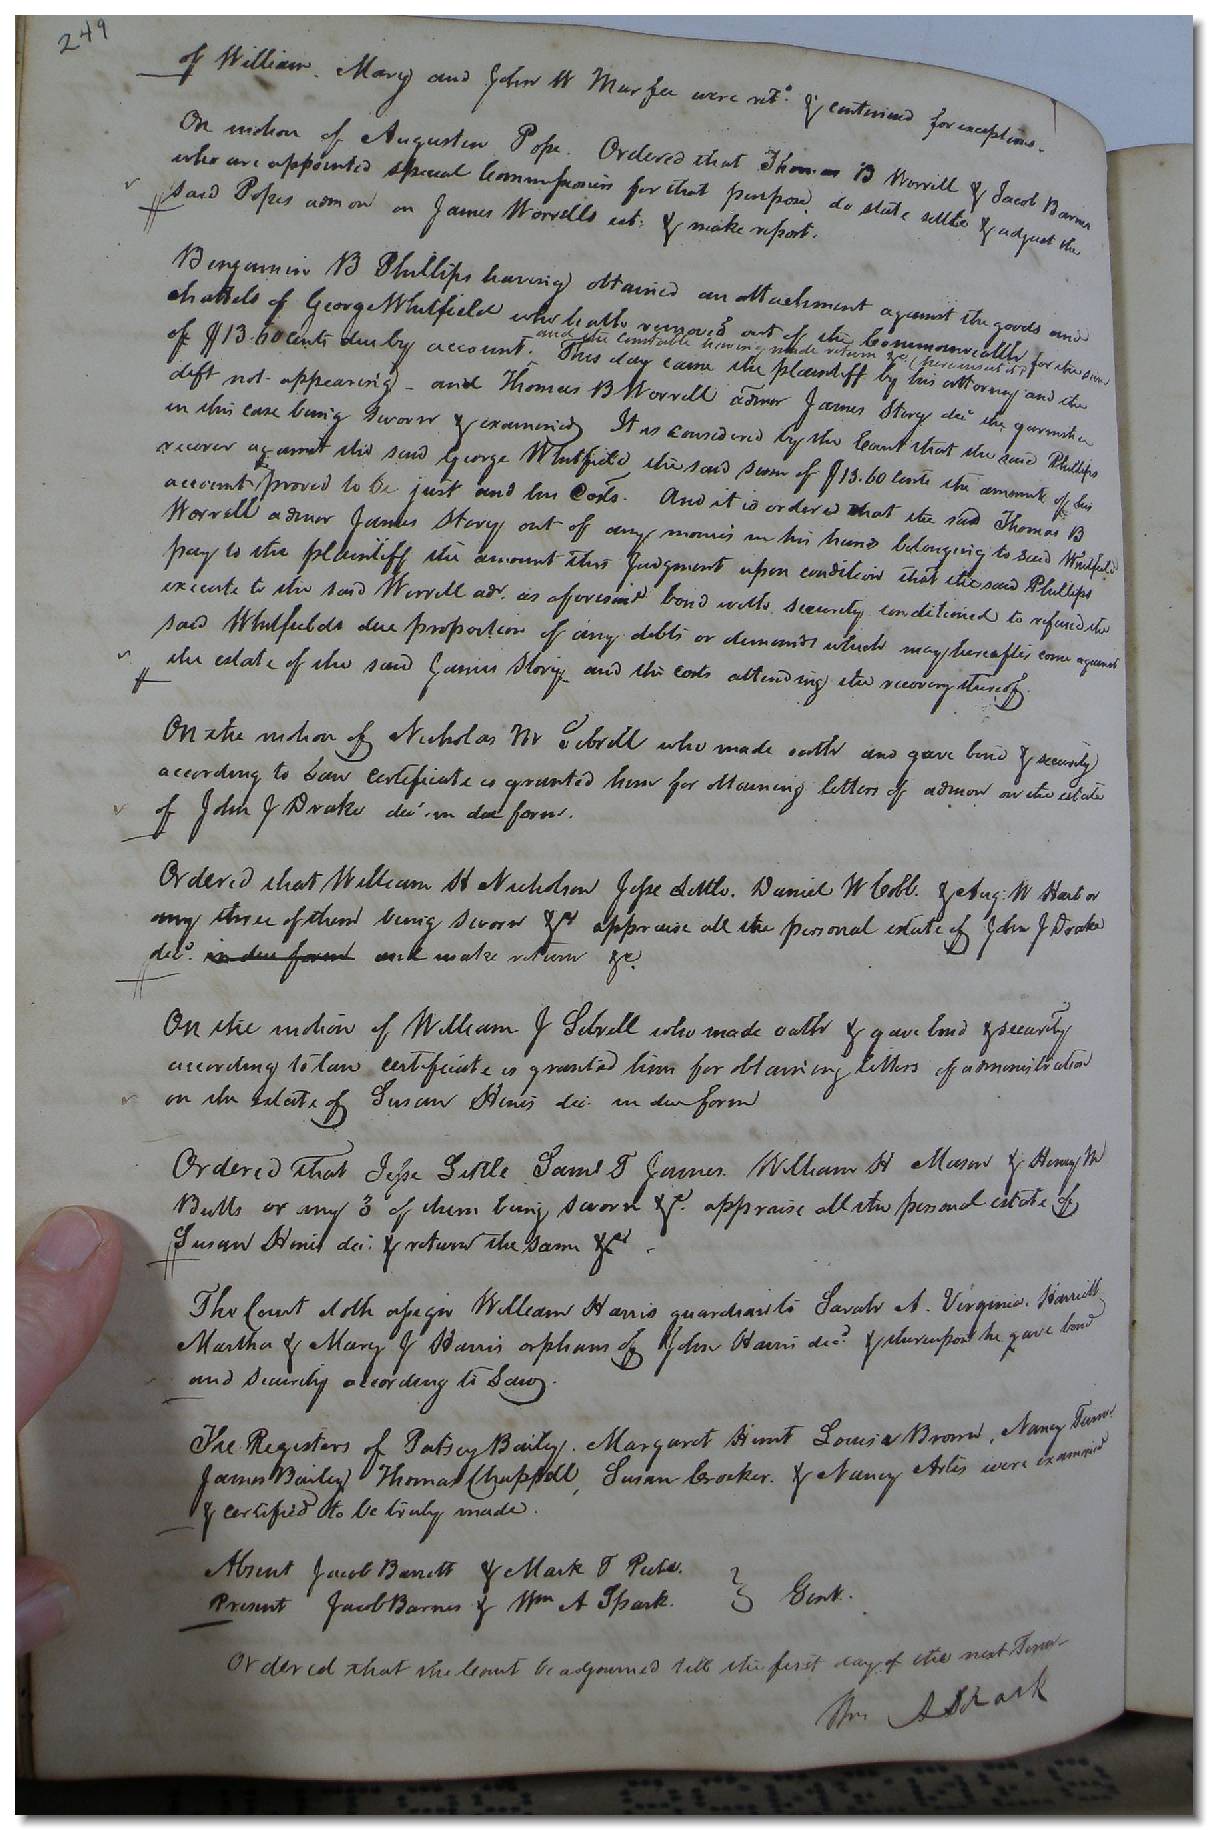 249
of William, Mary and John W Murfee were retd. & continued for exceptions.
On motion of Augustin Pope. Ordered that Thomas B Worrill & Jacob Barnes
who are appointed special Commissioners for that purpose, do state settle & adjust the
said Popes admon on James Worrells est. & make report.
Benjamin B Phillips having obtained an attachment against the goods and
chattels of George Whitfield who hath removed out of the Commonwealth for the sum
and the constable having made return &c.
of $13.60 cents due by account. This day came the plaintiff by his attorney and the
deft not appearing - and Thomas B Worrell admor James Story dec the garnishee
in this case being sworn & examined It is considered by the Court that the said Phillips
recover against the said George Whitfield the said sum of $13.60 cents the amount of his
account proved to be just and his Costs. And it is ordered that the said Thomas B
Worrell admor James Story out of any monies in his hands belonging to said Whitfield
pay to the plaintiff the amount this Judgment upon condition that the said Phillips
execute to the said Worrell adr. as aforesaid bond with security conditioned to refund the
said Whitfields due proportion of any debts or demands which may hereafter come against
the estate of the said James Story and the costs attending the recovery thereof.
On the motion of Nicholas M Sebrell who made oath and gave bond & security
according to Law certificate is granted him for obtaining letters of admon on the estate
of John J Drake decd. in due form.
Ordered that William H Nicholson Jesse Little, Daniel W Cobb. & Aug: W Hart or
any three of them being sworn &c appraise all the personal estate of John J Drake
decd. in due form and make return &c.
On the motion of William J Sebrell who made oath & gave bond & security
according to law certificate is granted him for obtaining letters of administration
on the estate of Susan Hines dec. in due form
Ordered that Jesse Little Saml T James. William H Mason & Henry M
Butts or any 3 of them being sworn &c. appraise all the personal estate of
Susan Hines dec. & return the same &c.
The Court doth assign William Harris guardian to Sarah A. Virginia. Harriett
Martha & Mary J Harris orphans of John Harris decd. & thereupon he gave bond
and security according to Law.
The Registers of Patsey Bailey. Margaret Hunt Louisa Brown, Nancy Turner
James Bailey Thomas Chappell, Susan Crocker. & Nancy Artis were examined
& certified to be truly made.
Absent Jacob Barrett & Mark T Peete.
Present Jacob Barnes & Wm A Spark. } Gent.
Ordered that the Court be adjourned till the first day of the next Term
Wm A Spark